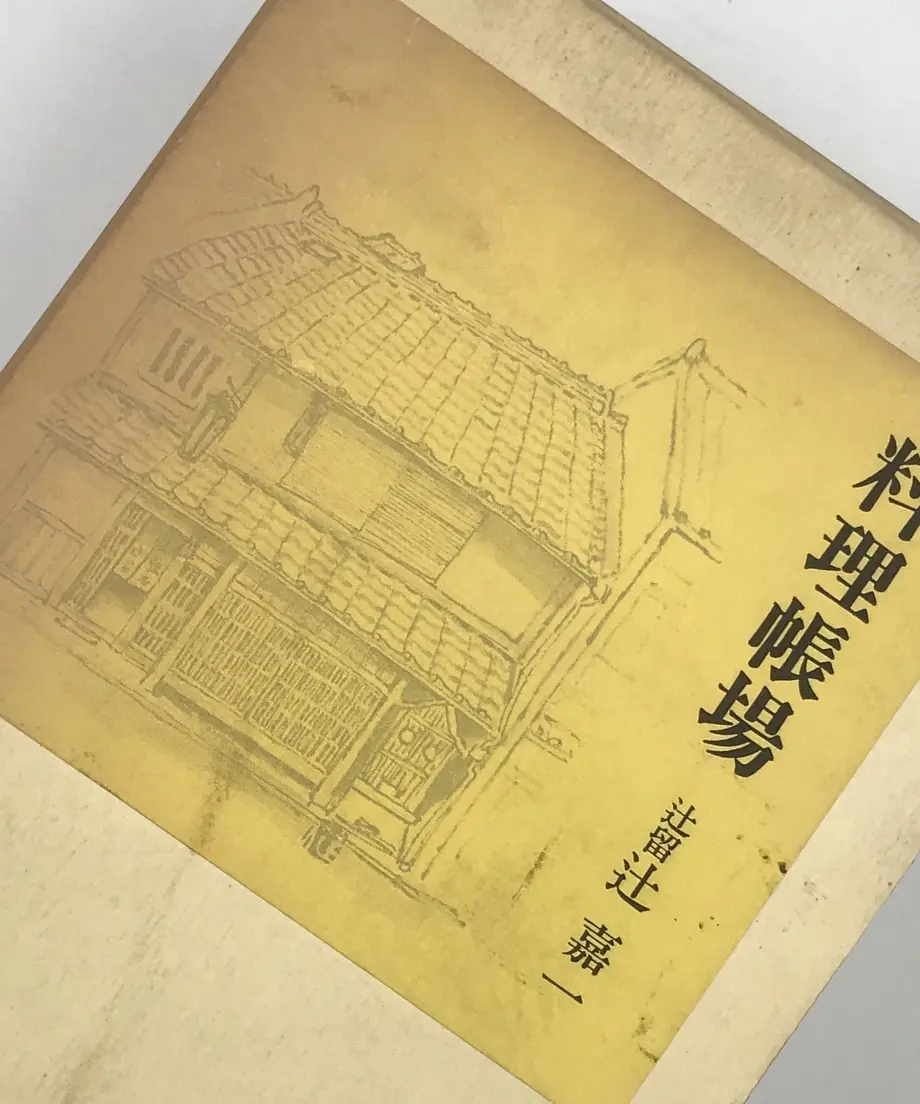 料理帳場
辻留 辻 嘉一